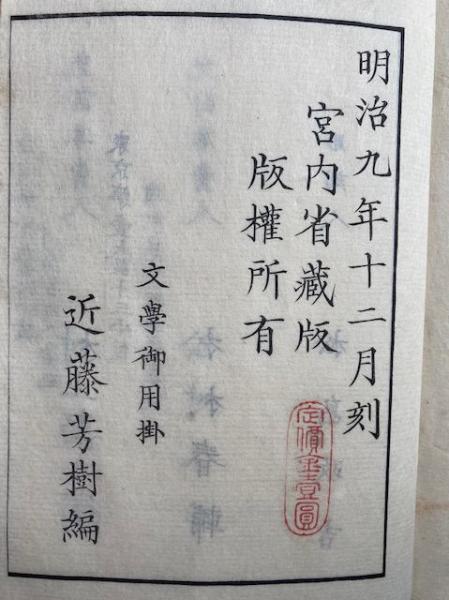 明治九年十二月刻
宮内省藏版
版權所有
定價金壹圓
文學御用掛
近藤芳樹編